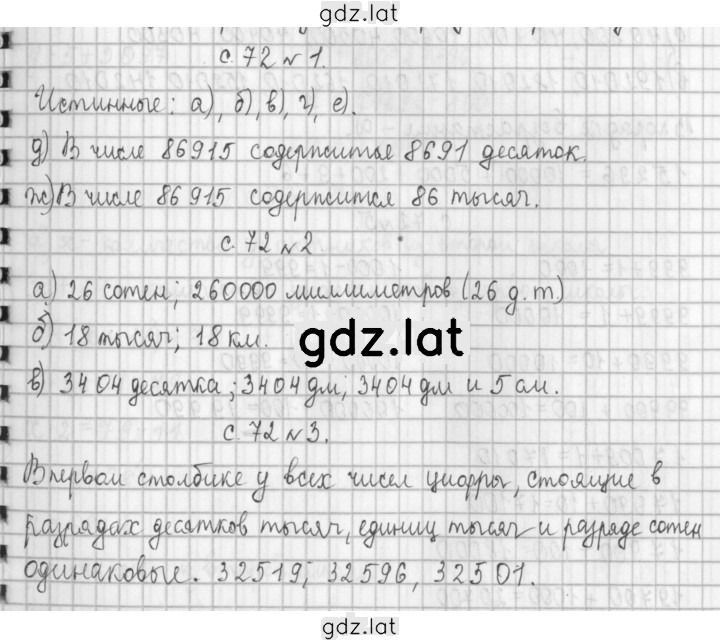 gdz.lat
с. 72 № 1.
Истинные: а), б), в), г), е).
д) В числе 86915 содержится 8691 десяток.
ж) В числе 86915 содержится 86 тысяч.
с. 72 № 2
а) 26 сотен; 260000 миллиметров (26 д.т.)
б) 18 тысяч; 18 км.
gdz.lat
в) 3404 десятка; 3404 дм; 3404 дм и 5 см.
с. 72 № 3.
В первом столбике у всех чисел цифры, стоящие в
разрядах десятков тысяч, единиц тысяч и разряде сотен
одинаковые. 32519; 32596, 32501.
gdz.lat